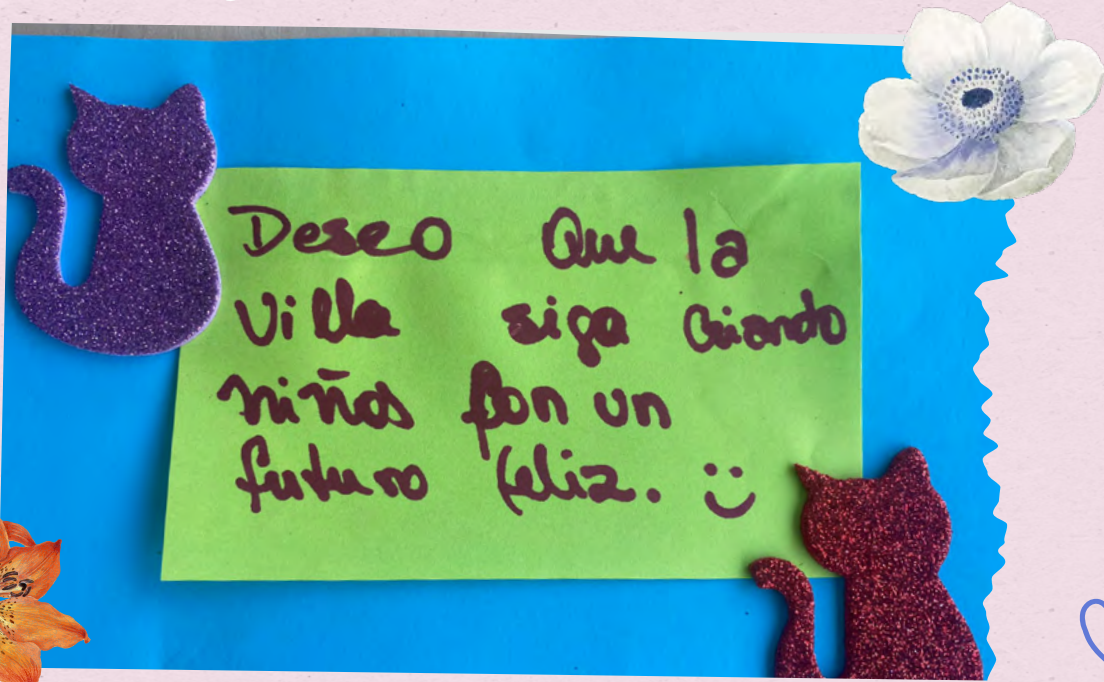 Deseo Que la
Villa siga criando
niños con un
futuro feliz. :)